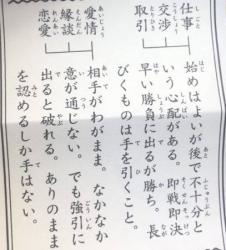 仕事
交渉
取引
始めはよいが後で不十分と
いう心配がある。即戦即決
早い勝負に出るが勝ち、長
びくものは手を引くこと。
愛情
縁談
恋愛
相手がわがまま。なかなか
意が通じない。でも強引に
出ると破れる。ありのまま
を認めるしか手はない。